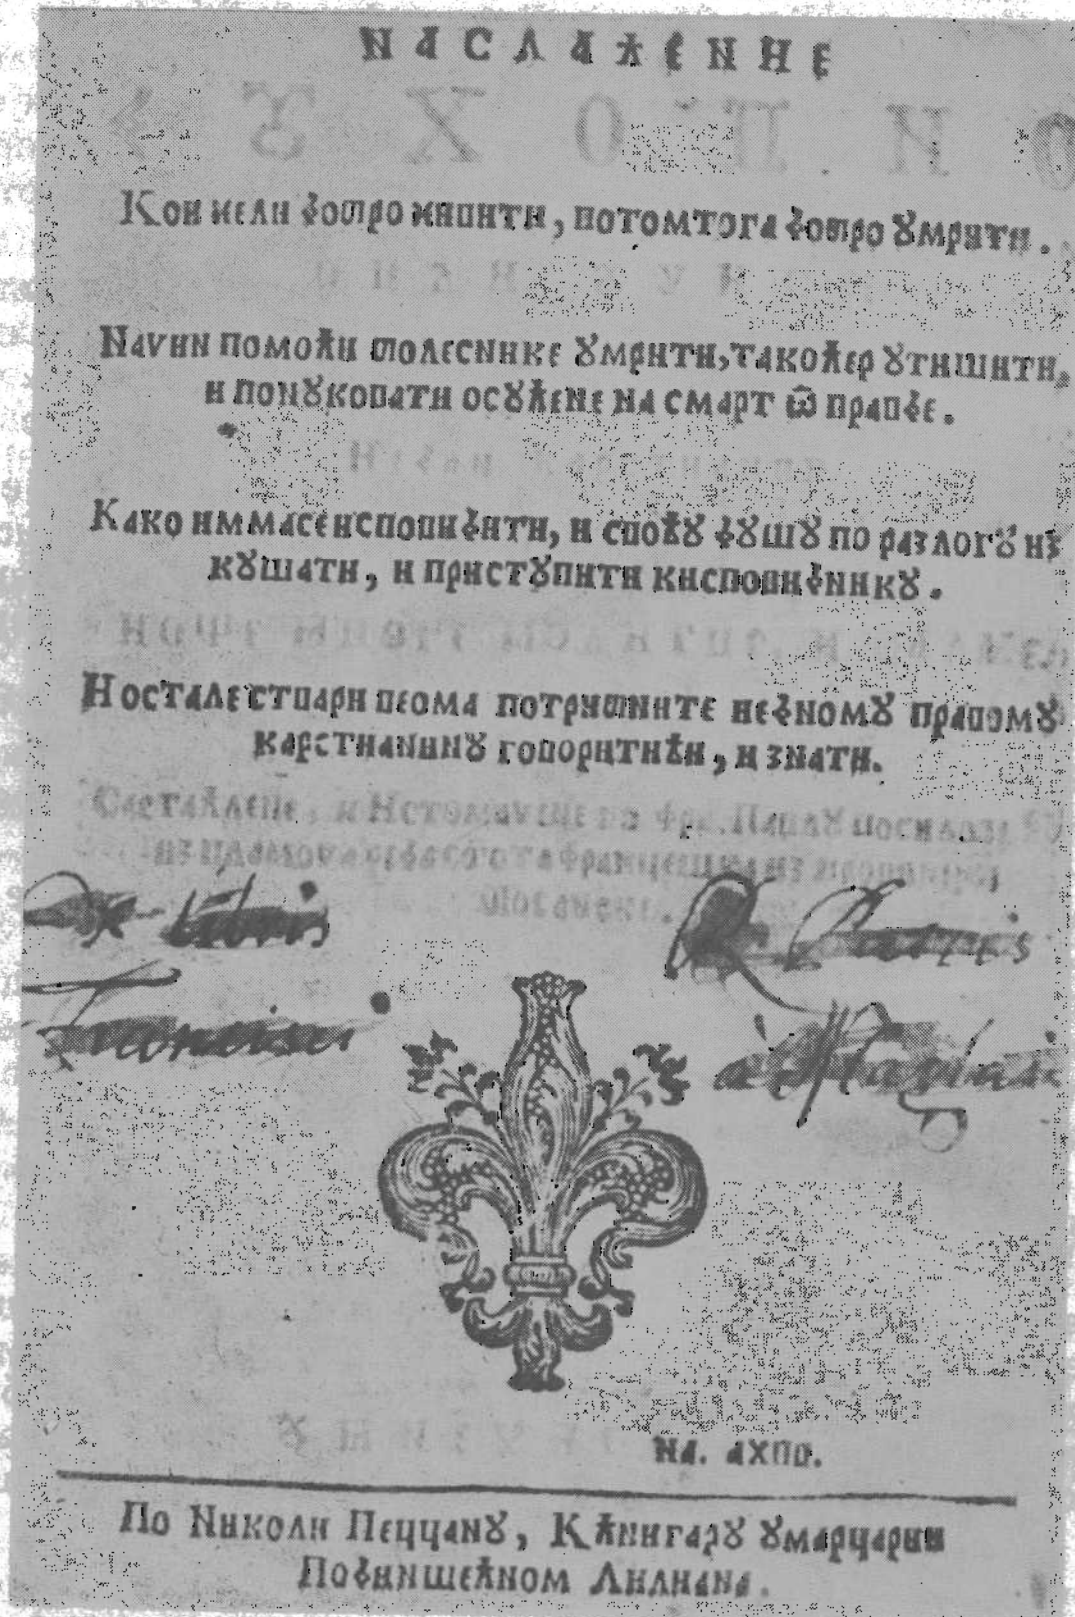 НАСЛАꙉЕНИЕ
Кои жели добро живити, потомтога добро ꙋмрити.
Начин помоꙉи болеснике ꙋмрити, такоꙉер ꙋтишити,
и понꙋковати осꙋꙉене на смарт ѿ правде.
Како иммасеисповидити, и своꙉꙋ дꙋшꙋ по разлогꙋ из
кꙋшати, и пристꙋпити кисповидникꙋ.
И осталествари веома потрибните једномꙋ правомꙋ
карстианинꙋ говоритиꙉи, и знати.
Ex libris
Francisci
НА. АХПВ.
По Николи Пеццанꙋ, Кꙉнигарꙋ ꙋмарцарии
Лилиана.